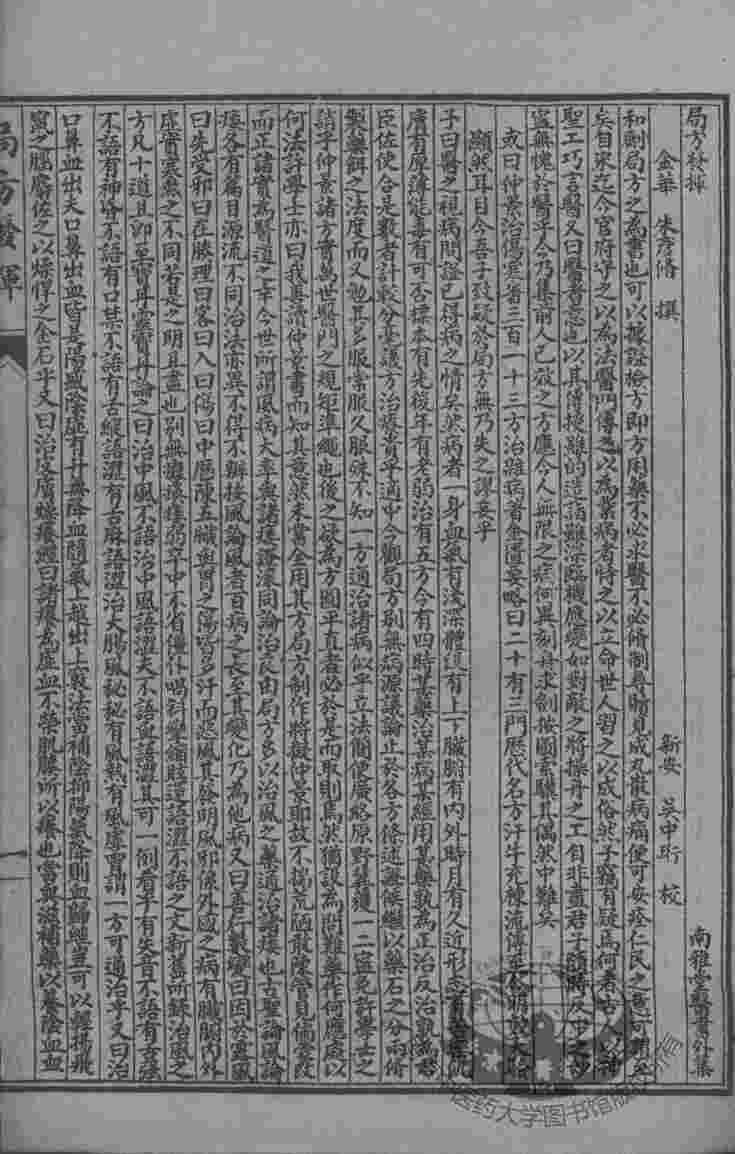 局方發揮
金華 朱彥脩 撰 新安 吳中珩 校 南雅堂醫書外集
和劑局方之為書也可以據證檢方即方用藥不必求醫不必修制尋贖見成丸散病痛便可安痊仁民之意可謂至
矣自宋迄今官府守之以為法醫門傳之以為業病者恃之以立命世人習之以成俗然予竊有疑焉何者古人以神
聖工巧言醫又曰醫者意也以其傳授雖的造詣雖深臨機應變如對敵之將操舟之工自非盡君子隨時反中之妙
寧無愧於醫乎今乃集前人已效之方應今人無限之病何異刻舟求劍按圖索驥其偶然中難矣
或曰仲景治傷寒著三百一十三方治雜病著金匱要略曰二十有三門歷代名方汗牛充棟流傳至今明效大驗
顯然耳目今吾子致疑於局方無乃失之謬妄乎
予曰醫之視病問證已得病之情矣然病者一身血氣有淺深體段有上下臟腑有內外時月有久近形志有苦樂肌
膚有厚薄能毒有可否標本有先後年有老弱治有五方令有四時某藥治某病某經用某藥孰為正治反治孰為君
臣佐使合是數者計較分毫議方治療貴乎適中今觀局方別無病源議論止於各方條述證候繼以藥石之分兩修
製藥餌之法度而又勉其多服常服久服殊不知一方通治諸病似乎立法簡便廣絡原野冀獲一二寧免許學士之
誚乎仲景諸方實萬世醫門之規矩準繩也後之欲為方圓平直者必於是而取則焉然猶設為問難藥作何應處以
何法許學士亦曰我善讀仲景書而知其意然未嘗全用其方局方制作將擬仲景耶故不揣荒陋敢陳管見倘蒙改
而正諸實為醫道之幸今世所謂風病大率與諸痿證滾同論治良由局方多以治風之藥通治諸痿也古聖論風論
痿各有篇目源流不同治法亦異不得不辯按風論風者百病之長至其變化乃為他病又曰善行數變曰因於露風
曰先受邪曰在腠理曰客曰入曰傷曰中歷陳五臟與胃之傷皆多汗而惡風其發明風邪係外感之病有臟腑內外
虛實寒熱之不同若是之明且盡也別無癱瘓痿弱卒中不省僵仆喎斜攣縮眩運語澀不語之文新舊所錄治風之
方凡十道且即至寶丹靈寶丹論之曰治中風不語治中風語澀夫不語與語澀其可一例看乎有失音不語有舌強
不語有神昏不語有口禁不語有舌縱語澀有舌麻語澀治大腸風秘秘有風熱有風虛曾謂一方可通治乎又曰治
口鼻血出夫口鼻出血皆是陽盛陰虛有升無降血隨氣上越出上竅法當補陰抑陽氣降則血歸經豈可以輕揚飛
竄之腦麝佐之以燥悍之金石乎又曰治皮膚燥癢經曰諸癢為虛血不榮肌腠所以癢也當與滋補藥以養陰血血
局方發揮